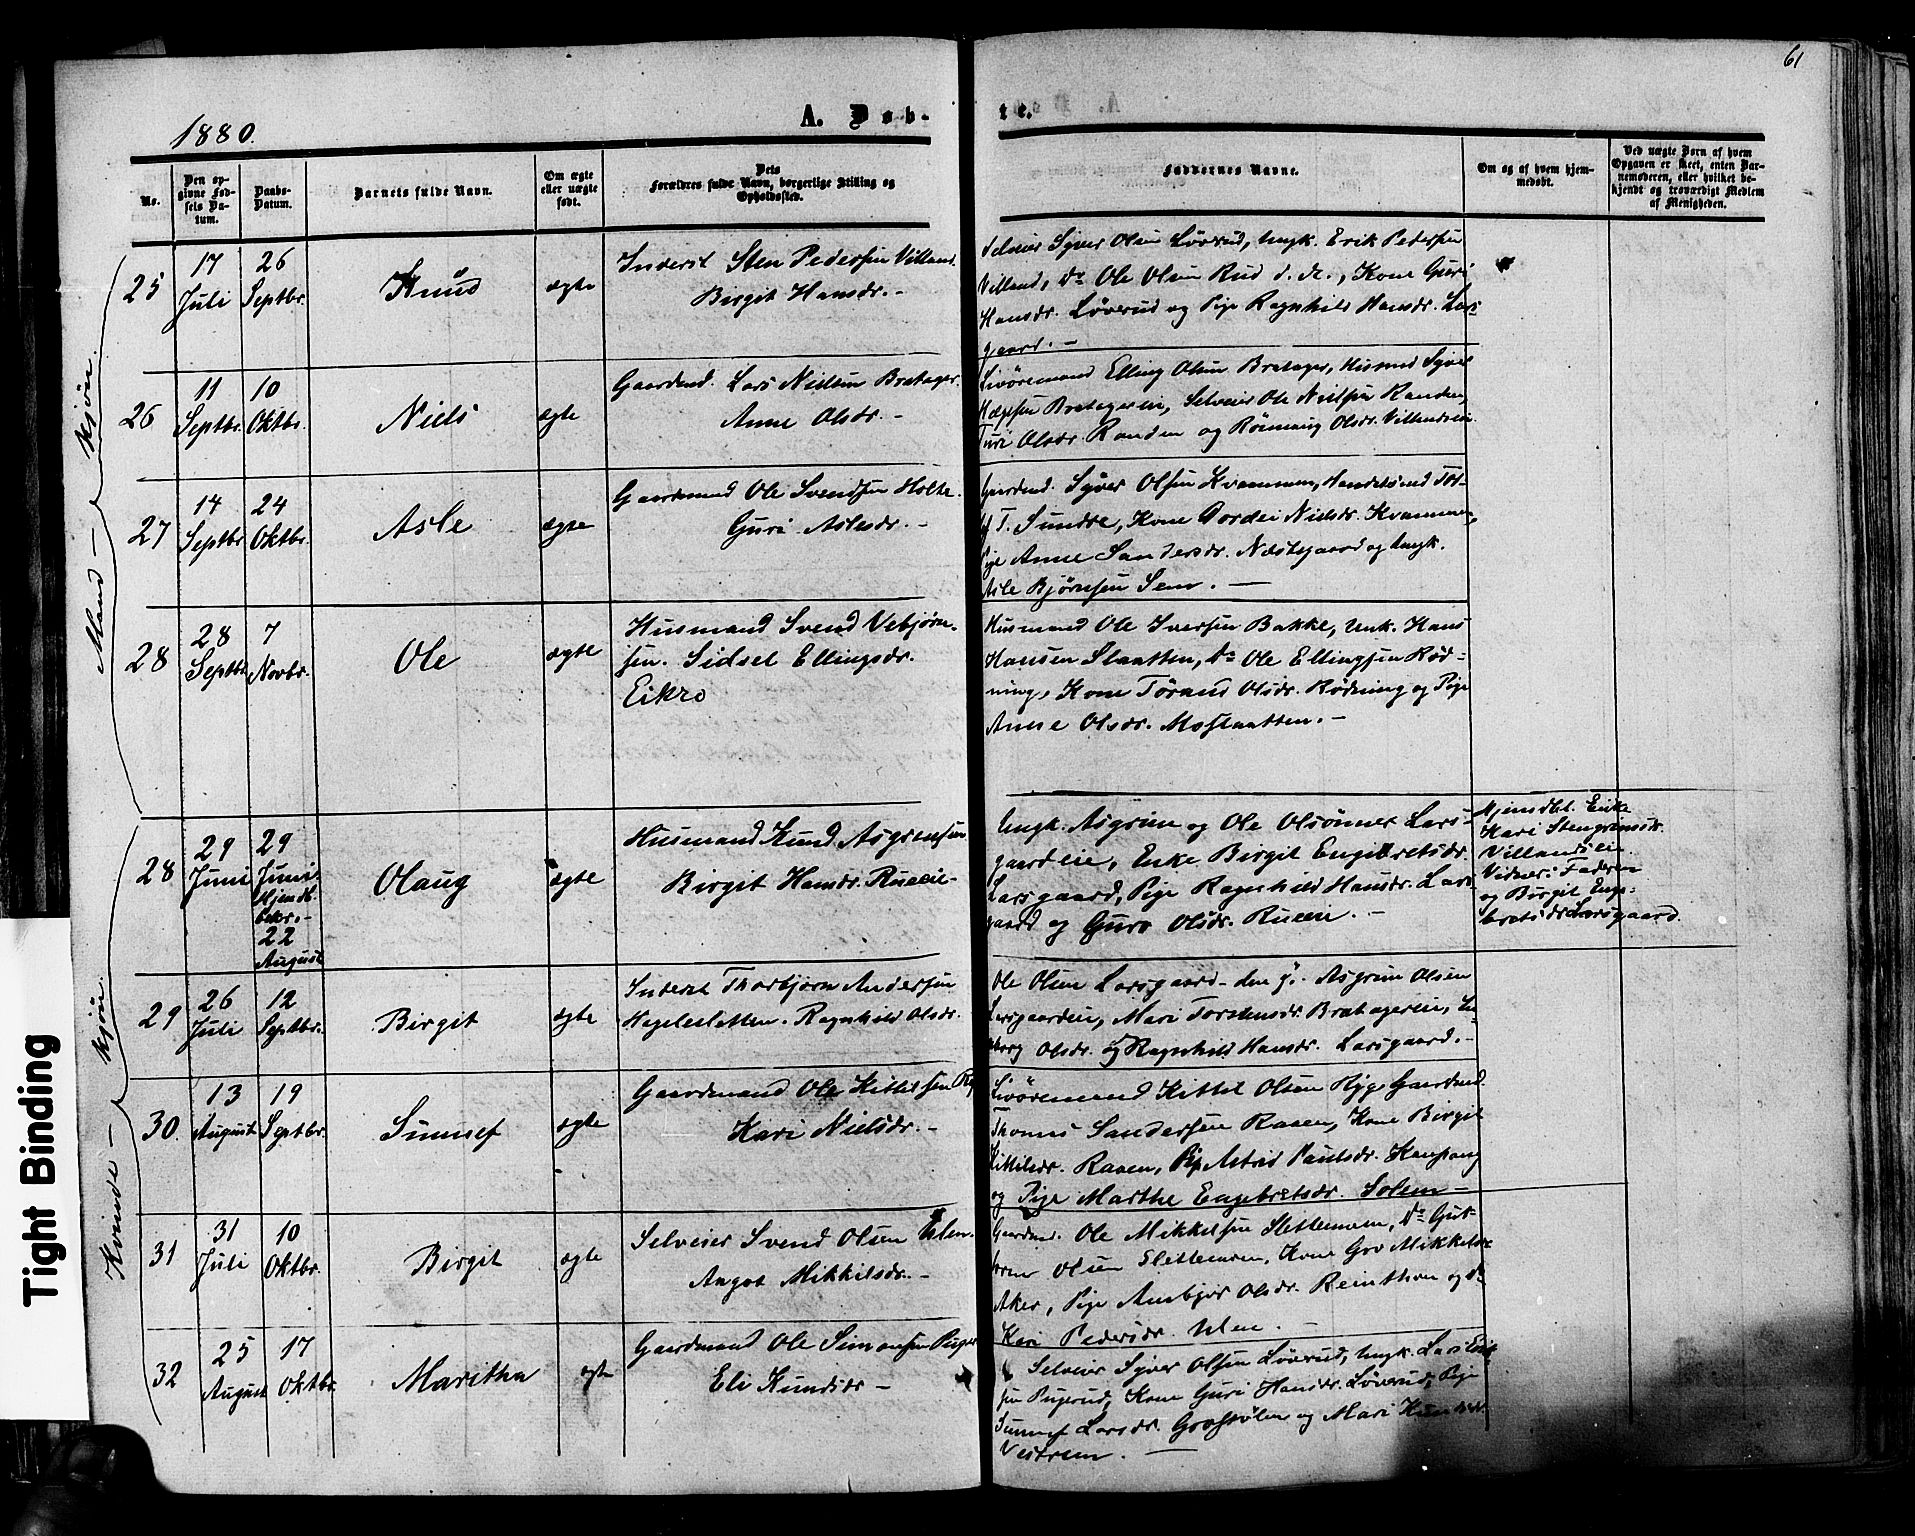 61
1880.
A. Døb-
te.
No.
Den op-
givne Fød-
sels Da-
tum.
Daabs-
Datum.
Barnets fulde Navn.
Om ægte
eller uægte
født.
Dets
Forældres fulde Navn, borgerlige Stilling og
Opholdssted.
Faddernes Navne.
Om og af hvem hjem-
medøbt.
Ved uægte Børn af hvem
Opgaven er skeet, enten Bar-
nemoderen, eller hvilket be-
kjendt og troværdigt Medlem
af Menigheden.
Mand-kjøn.
25
17
Juli
26
Septbr.
Knud
ægte
Inderst Sten Pedersen Villand.
Birgit Hansdr. -
Selveier Syver Olsen Løverud, Ungk. Erik Pedersen
Villand, do Ole Olsen Rud d. æ., Kone Guri
Hansdr. Løverud og Pige Ragnhild Hansdr. Lars-
gaard. -
26
11
Septbr.
10
Oktbr.
Niels
ægte
Gaardmd. Lars Nielsen Bratager.
Anne Olsdr. -
Livøremand Elling Olsen Bratager, Husmd Syver
Bratagerein, Selveier Ole Nielsen Randen,
Turi Olsdr. Randen og Rønnaug Olsdr. Villandseie
27
14
Septbr.
24
Oktbr.
Asle
ægte
Gaardmand Ole Svendsen Holte.
Guri Aslesdr. -
Gaardmd. Syver Olsen Kvammen, Handelsmd Tol-
lef T. Sundre, Kone Gordei Nielsdr. Kvammen,
Pige Anne Sandersdr. Næstegaard og Ungk.
Asle Bjørnsen Sem. -
28
28
Septbr.
7
Novbr.
Ole
ægte
Husmand Svend Vebjørn-
sen. Sidsel Ellingsdr.
Eikro
Husmand Ole Iversen Bakke, Unk. Hans
Hansen Slaatten, do Ole Ellingsen Rød-
ning, Kone Tørand Olsdr. Rødning og Pige
Anne Olsdr. Moslaatten. -
Kvinde-kjøn.
28
29
Juni
29
Juni
Hjemdb.
bekr.-
22
August
Olaug
ægte
Husmand Knud Asgrimsen
Birgit Hansdr. Rueeie-
Ungk. Asgrim og Ole Olsønner Lars-
gaardeie, Enke Birgit Engebretsdr.
Larsgaard, Pige Ragnhild Hansdr. Lars-
gaard og Guro Olsdr. Rueeie. -
Hjemdbt. Enke
Kari Stengrimsdr.
Villandseie
Vidner: Faderen
og Birgit Enge-
bretsdr Larsgaard.
29
26
Juli
12
Septbr.
Birgit
ægte
Inderst Thorbjørn Andersen
Hegleslatten. Ragnhild Olsdr.
Ole Olsen Larsgaard den y. Asgrim Olsen
Larsgaardeie, Mari Torstensdr. Bratagereie, In-
geborg Olsdr. og Ragnhild Hansdr. Larsgaard. -
30.
13
August
19
Septbr.
Sunnef
ægte
Gaardmand Ole Kittilsen
Kari Nielsdr. -
Livøremand Kittel Olsen Gaardmd.
Thomas Sandersen Raaen, Kone Birgit
Kittilsdr. Raaen, Pige Astrid Paulsdr. Kaupang
og Pige Marthe Engebretsdr. Solem -
31
31
Juli
10
Oktbr.
Birgit
ægte
Selveier Svend Olsen Uslen.
Angot Mikkilsdr. -
Gaardmd. Ole Mikkelsen Slettemoen, do Gut-
torm Olsen Slettemoen, Kone Gro Mikkelsdr
Aker, Pige Ambjør Olsdr. Reinthon og do
Kari Pedersdr. Uslen. -
32
25
August
17
Oktbr.
Maritha
ægte
Gaardmand Ole Simonsen
Eli Knudsdr -
Selveier Syver Olsen Løverud, Ungk. Lars
Kone Guri Hansdr. Løverud, Pige
Sunnef Larsdr. Grøstølen og Mari Knudsdr.
-
Tight Binding